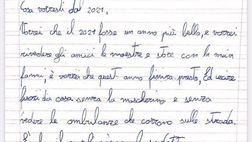 Cosa vorresti dal 2021.
Vorrei che il 2021 fosse un anno più bello, e vorrei
rivedere gli amici le maestre e stare con la mia
fami, e vorrei che quest'anno finisca presto, di uscire
fuori da casa senza la mascherina e senza
vedere le ambulanze che corrono sulle strada.